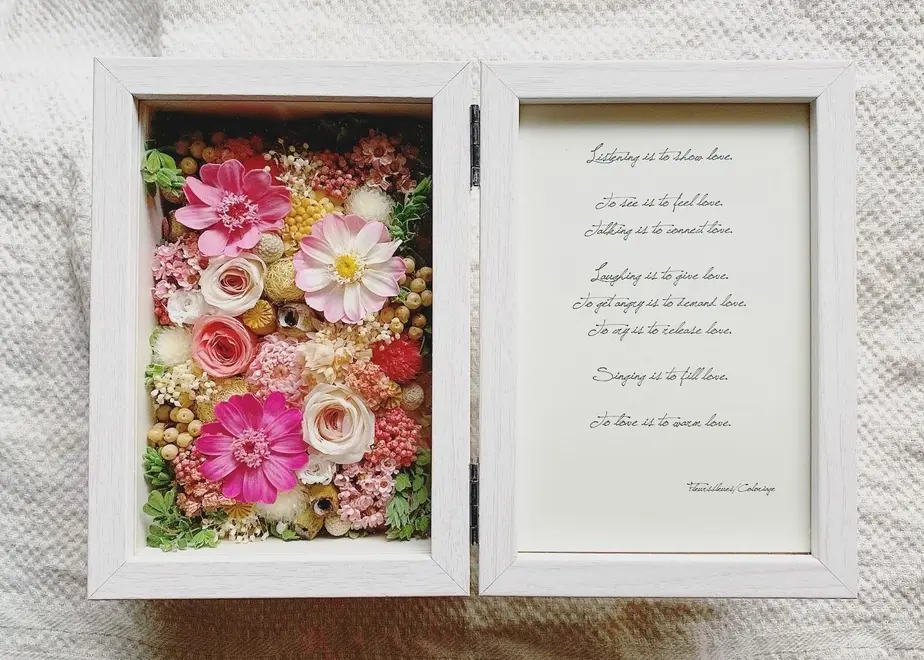 Listening is to show love.
To see is to feel love.
Talking is to connect love.
Laughing is to give love.
To get angry is to demand love.
To cry is to release love.
Singing is to fill love.
To love is to warm love.